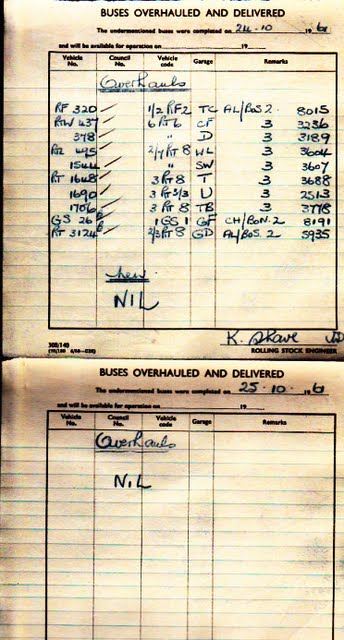 BUSES OVERHAULED AND DELIVERED
The undermentioned buses were completed on 24.10 1961
and will be available for operation on 19
Vehicle No. Council No. Vehicle code Garage Remarks
Overhauls
RF 320 ✓ 1/2 RF2 TC AL/BOS 2. 8015
RTW 437 ✓ 6 RT6 CF 3 3236
378 ✓ " D 3 3189
RT 495 ✓ 2/7 RT 8 WL 3 3604
1544 ✓ " SW 3 3607
RT 1648 ✓ 3 RT 8 T 3 3688
1690 ✓ 3 RT 3/3 U 3 2513
1706 3 RT 8 TB 3 3778
GS 26 1 GS 1 GF CH/BON. 2 8191
RT 3124 2/3 RT 8 GD AL/BOS. 2 5935
New
NIL
K. Shave
ROLLING STOCK ENGINEER
BUSES OVERHAULED AND DELIVERED
The undermentioned buses were completed on 25.10. 1961
and will be available for operation on 19
Vehicle No. Council No. Vehicle code Garage Remarks
Overhauls
NIL